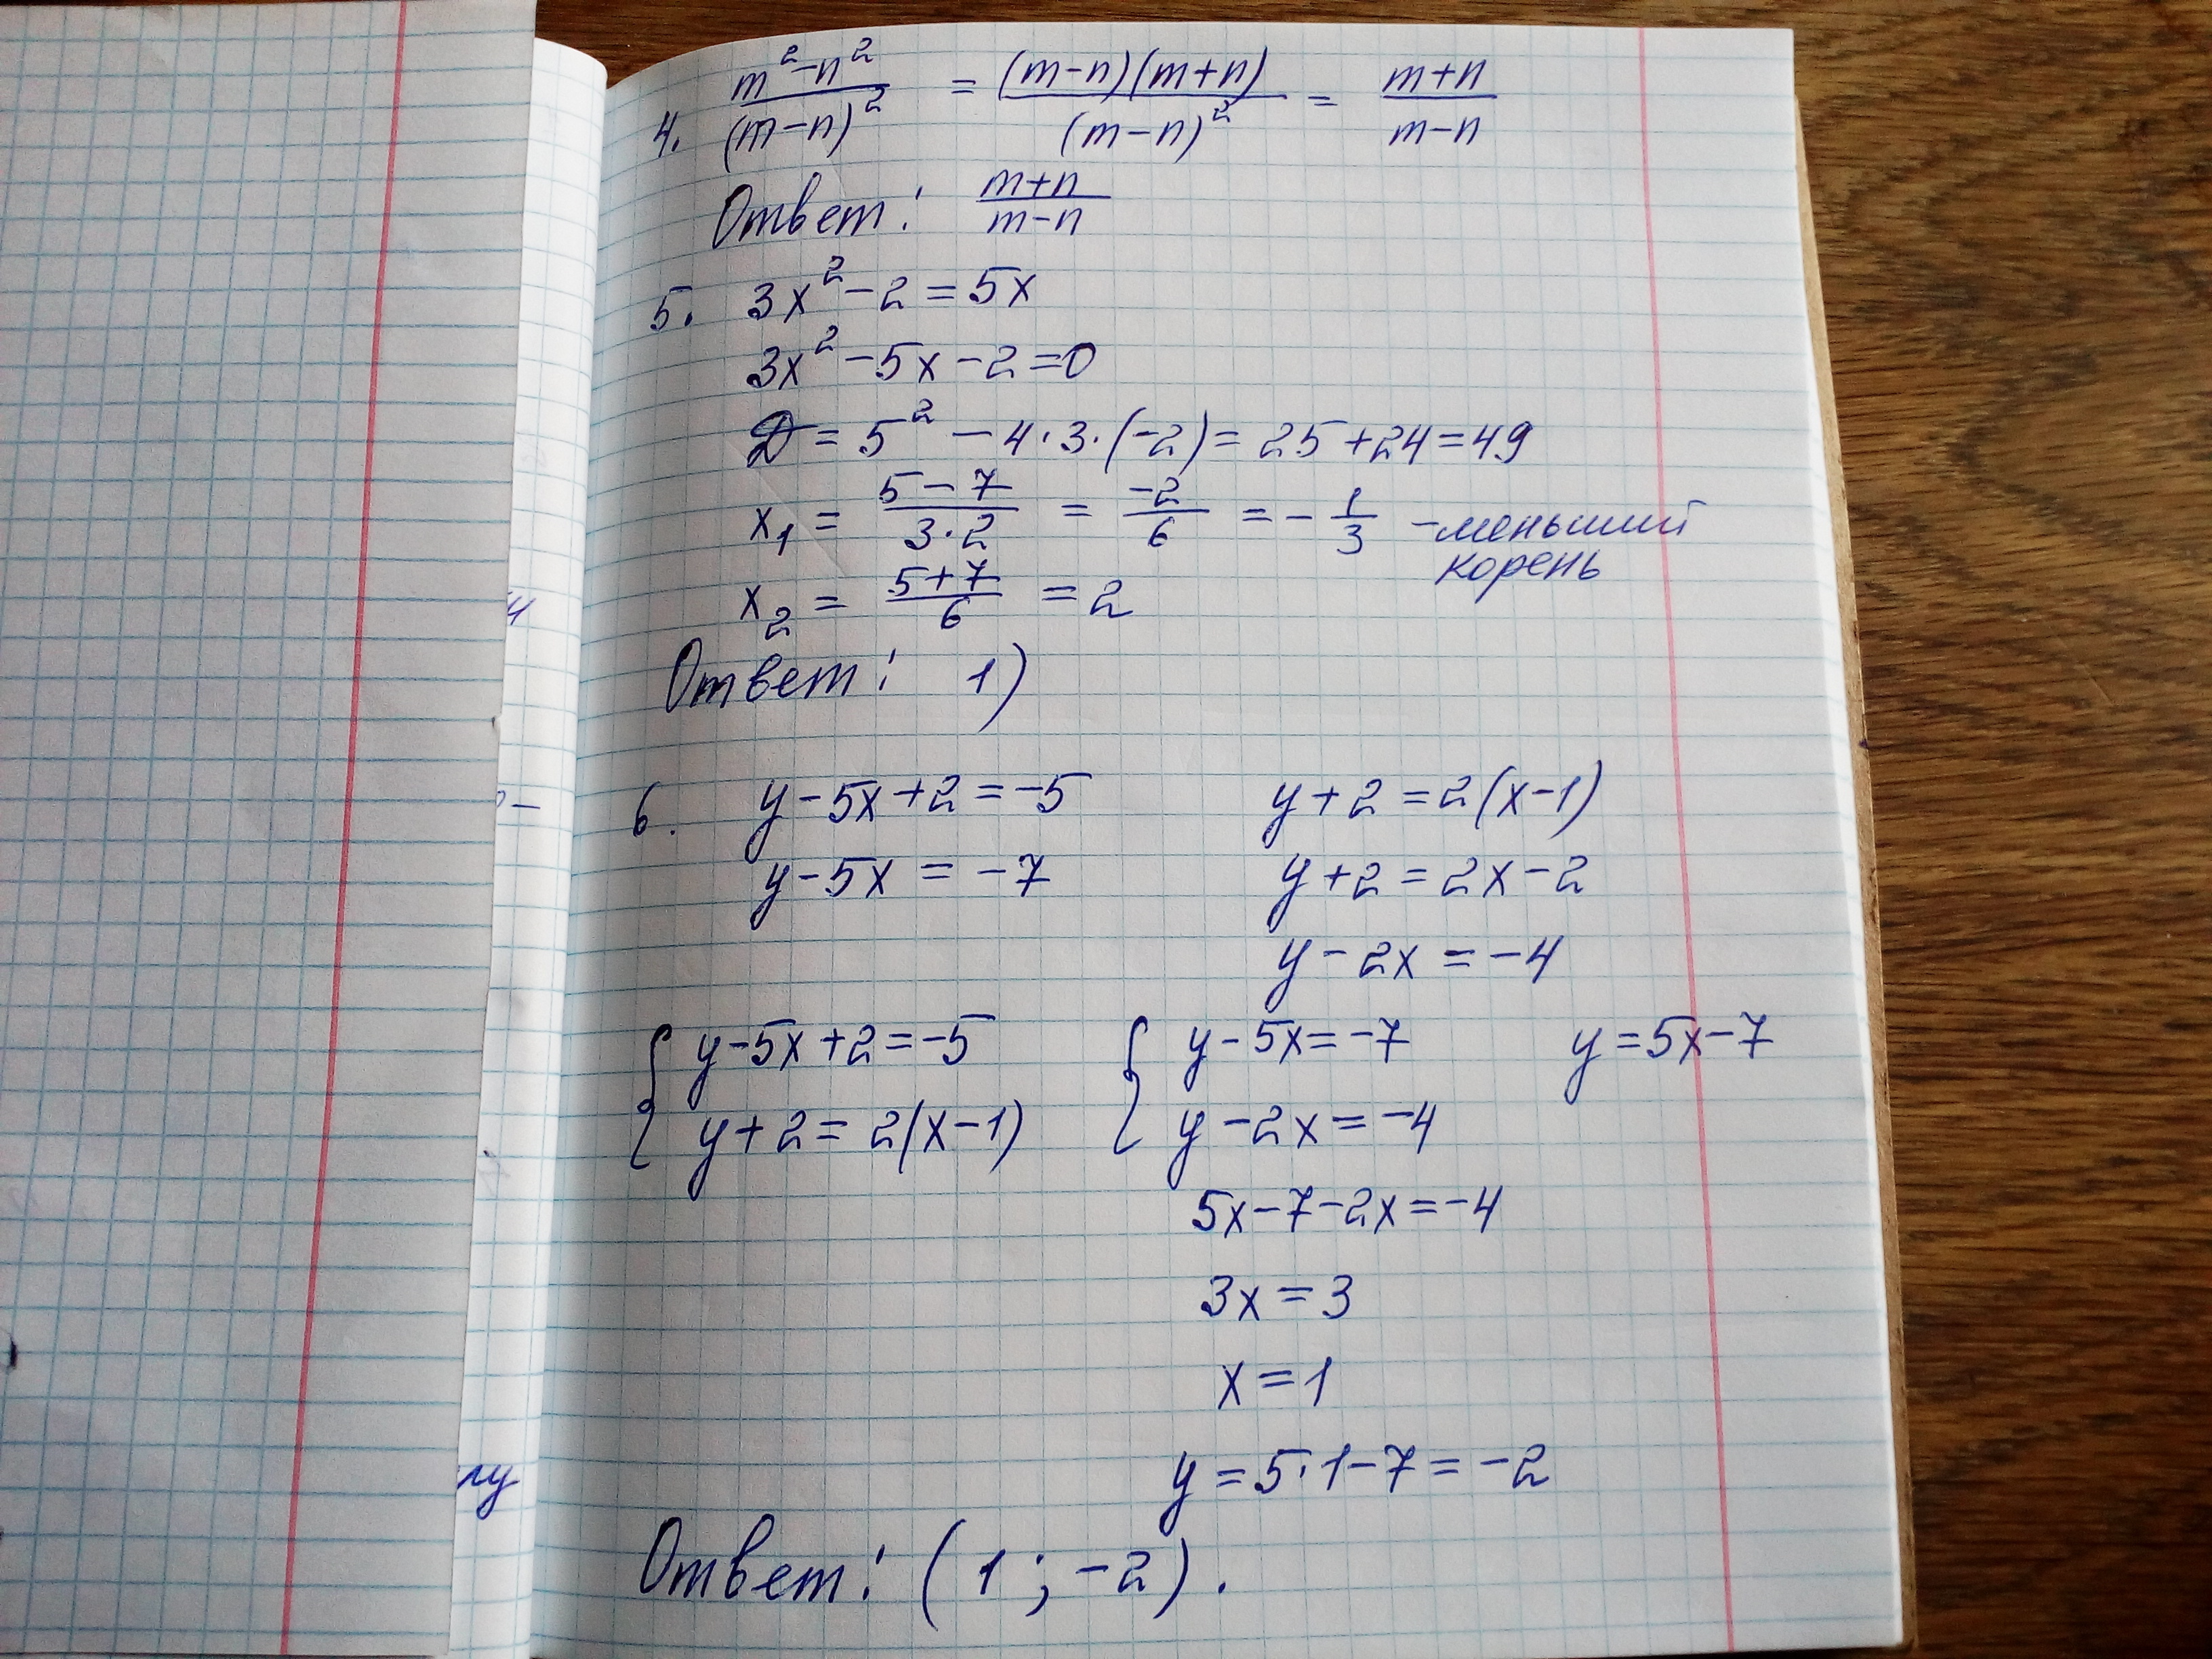 4. \frac{m^2-n^2}{(m-n)^2} = \frac{(m-n)(m+n)}{(m-n)^2} = \frac{m+n}{m-n}
Ответ: \frac{m+n}{m-n}
5. 3x^2-2=5x
3x^2-5x-2=0
D = 5^2-4·3·(-2)=25+24=49
x_1 = \frac{5-7}{3·2} = \frac{-2}{6} = -\frac{1}{3} - меньший
корень
x_2 = \frac{5+7}{6} = 2
Ответ: 1)
6. y-5x+2=-5 y+2=2(x-1)
y-5x=-7 y+2=2x-2
y-2x=-4
{ y-5x+2=-5 { y-5x=-7 y=5x-7
y+2=2(x-1) y-2x=-4
5x-7-2x=-4
3x=3
x=1
y=5·1-7=-2
Ответ: (1; -2).